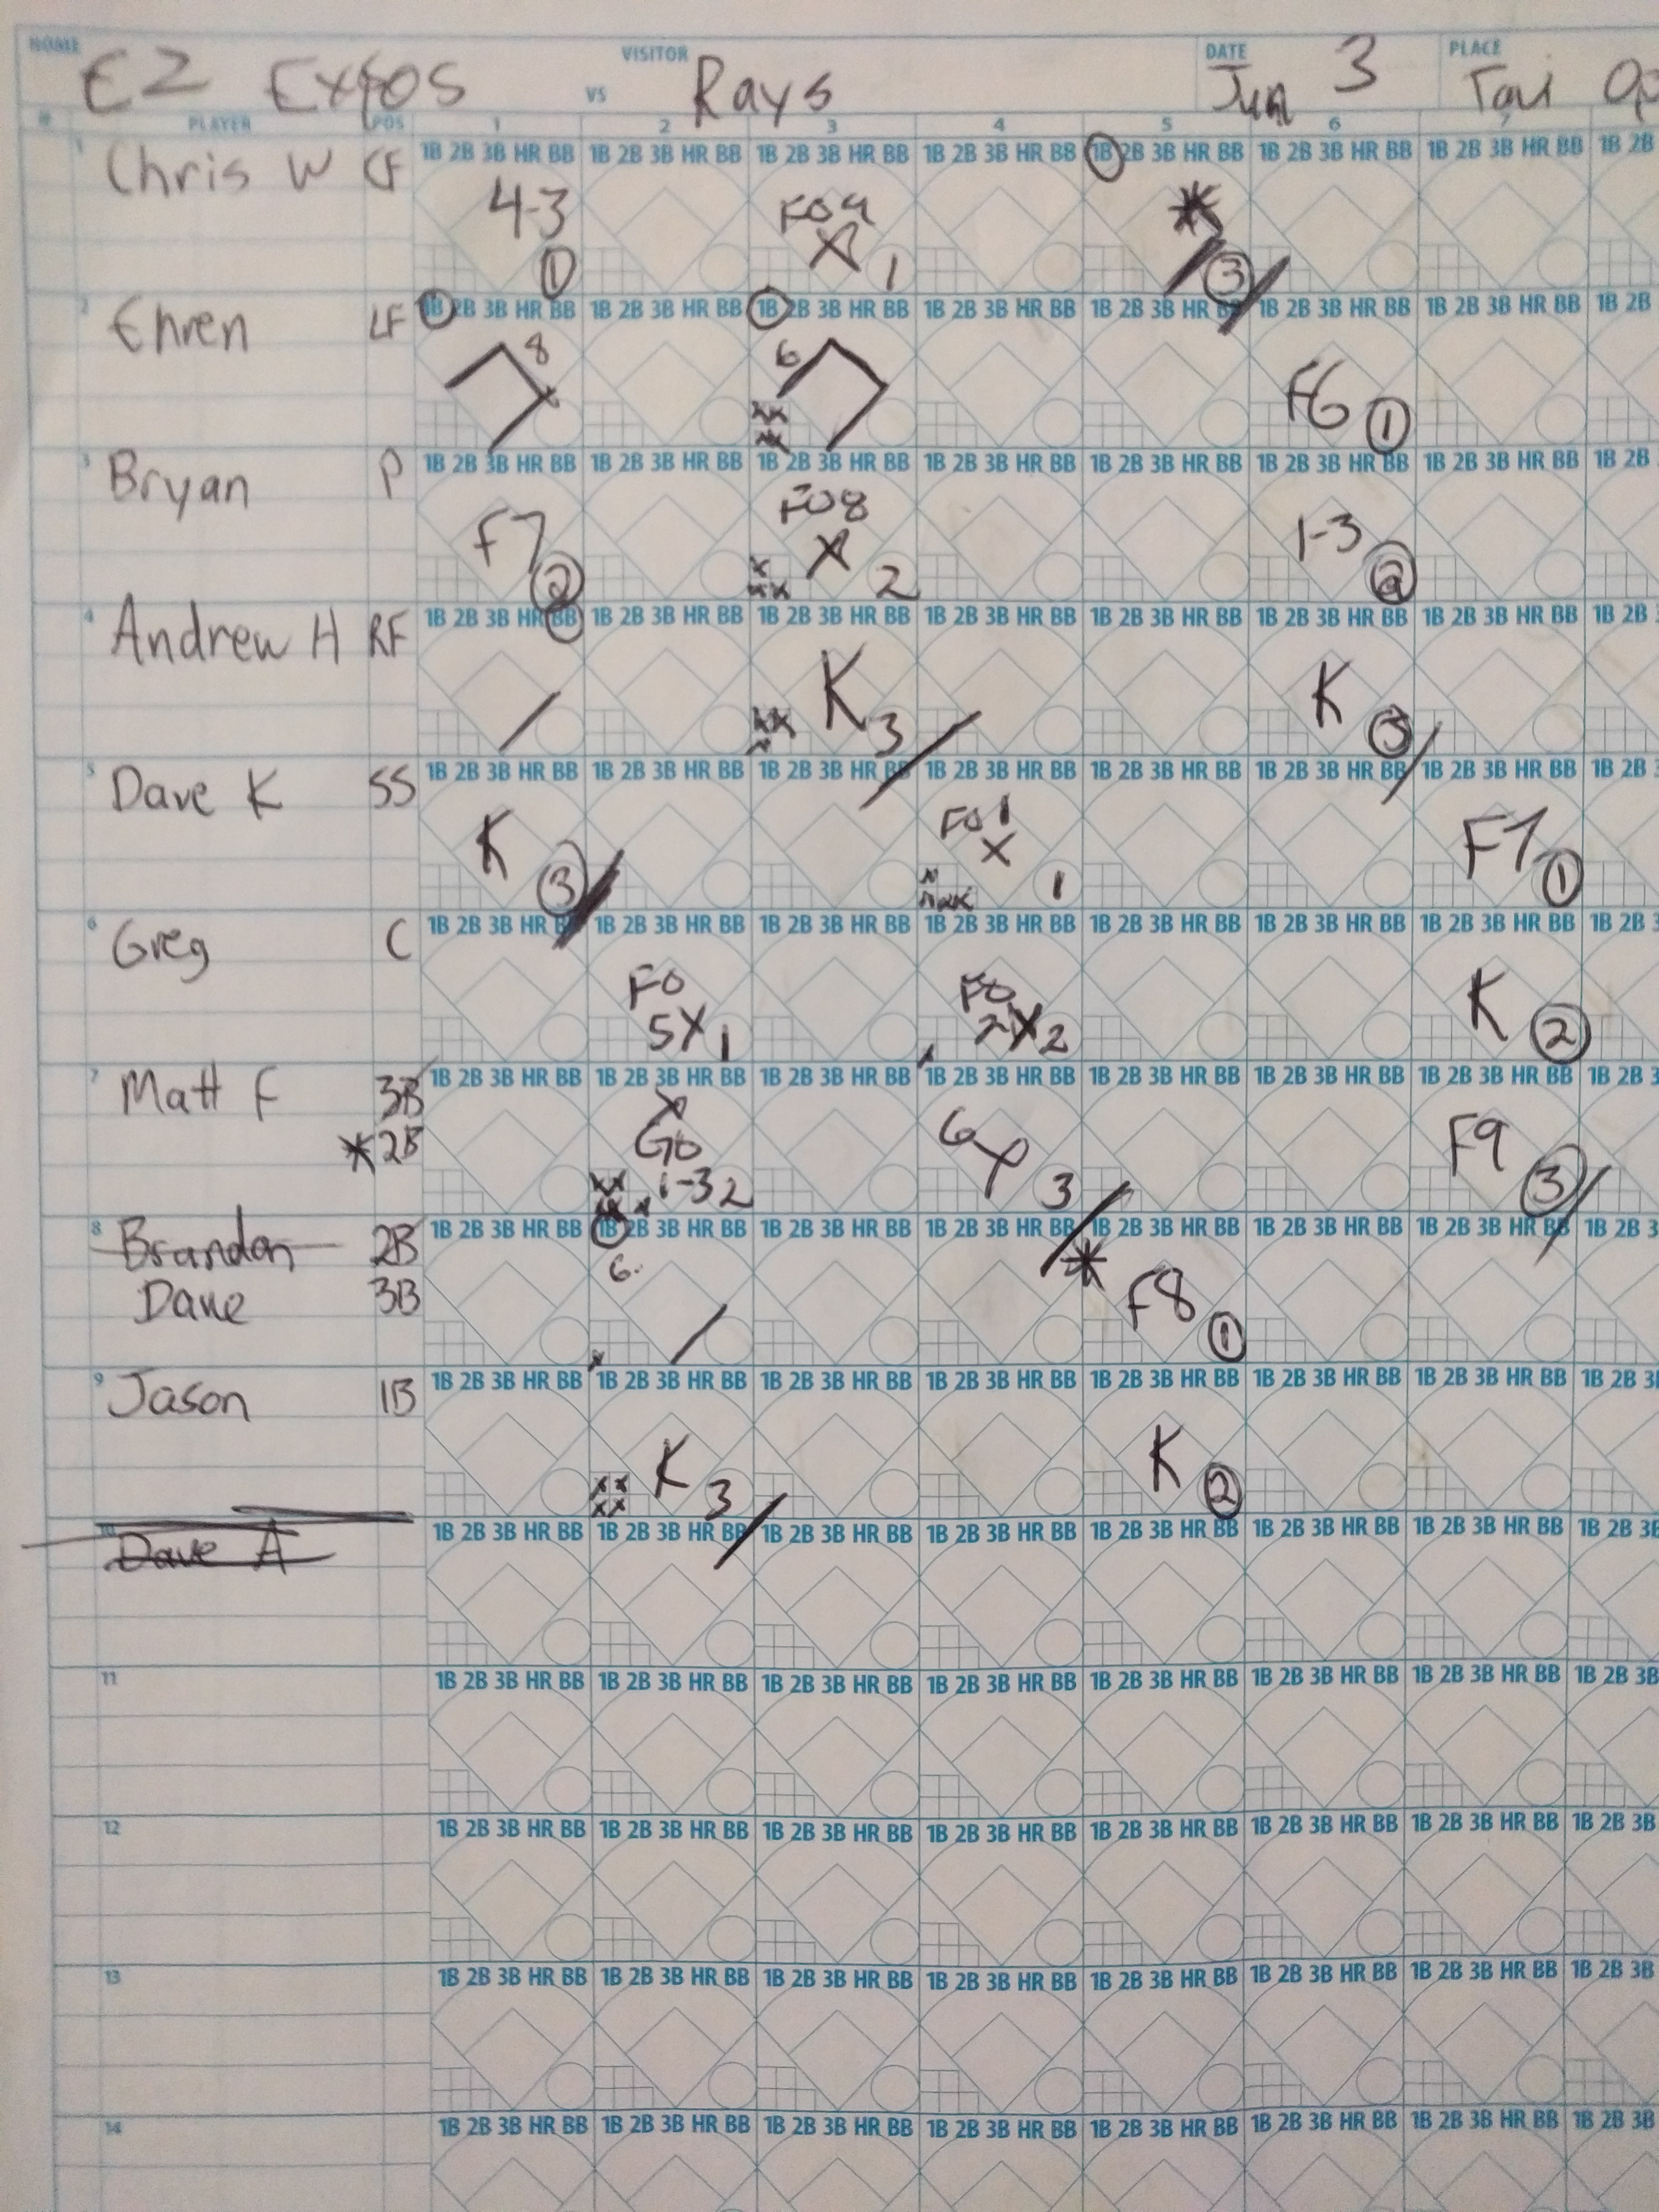 HOME VISITOR DATE PLACE
EZ Expos VS Rays Jun 3
# PLAYER POS 1 2 3 4 5 6 7
1 Chris W CF 1B 2B 3B HR BB 1B 2B 3B HR BB 1B 2B 3B HR BB 1B 2B 3B HR BB 1B 2B 3B HR BB 1B 2B 3B HR BB 1B 2B 3B HR BB 1B 2B
4-3 FO9 *
1 1 3
2 Ehren LF 1B 2B 3B HR BB 1B 2B 3B HR BB 1B 2B 3B HR BB 1B 2B 3B HR BB 1B 2B 3B HR BB 1B 2B 3B HR BB 1B 2B 3B HR BB 1B 2B
8 6 F6 1
3 Bryan P 1B 2B 3B HR BB 1B 2B 3B HR BB 1B 2B 3B HR BB 1B 2B 3B HR BB 1B 2B 3B HR BB 1B 2B 3B HR BB 1B 2B 3B HR BB 1B 2B
F7 FO8 1-3
2 X 2 2
4 Andrew H RF 1B 2B 3B HR BB 1B 2B 3B HR BB 1B 2B 3B HR BB 1B 2B 3B HR BB 1B 2B 3B HR BB 1B 2B 3B HR BB 1B 2B 3B HR BB 1B 2B
K 3 K 3
5 Dave K SS 1B 2B 3B HR BB 1B 2B 3B HR BB 1B 2B 3B HR BB 1B 2B 3B HR BB 1B 2B 3B HR BB 1B 2B 3B HR BB 1B 2B 3B HR BB 1B 2B
K FO1 F7
3 X 1 1
6 Greg C 1B 2B 3B HR BB 1B 2B 3B HR BB 1B 2B 3B HR BB 1B 2B 3B HR BB 1B 2B 3B HR BB 1B 2B 3B HR BB 1B 2B 3B HR BB 1B 2B 3
FO FO K
5X 1 2X 2 2
7 Matt F 3B 1B 2B 3B HR BB 1B 2B 3B HR BB 1B 2B 3B HR BB 1B 2B 3B HR BB 1B 2B 3B HR BB 1B 2B 3B HR BB 1B 2B 3B HR BB 1B 2B 3
*2B X GO 6 F9
1-3 2 3 3
8 Brandon 2B 1B 2B 3B HR BB 1B 2B 3B HR BB 1B 2B 3B HR BB 1B 2B 3B HR BB 1B 2B 3B HR BB 1B 2B 3B HR BB 1B 2B 3B HR BB 1B 2B 3
Dave 3B 6 * F8 1
9 Jason 1B 1B 2B 3B HR BB 1B 2B 3B HR BB 1B 2B 3B HR BB 1B 2B 3B HR BB 1B 2B 3B HR BB 1B 2B 3B HR BB 1B 2B 3B HR BB 1B 2B 3
K 3 K 2
10 Dave A 1B 2B 3B HR BB 1B 2B 3B HR BB 1B 2B 3B HR BB 1B 2B 3B HR BB 1B 2B 3B HR BB 1B 2B 3B HR BB 1B 2B 3B HR BB 1B 2B 3B
11 1B 2B 3B HR BB 1B 2B 3B HR BB 1B 2B 3B HR BB 1B 2B 3B HR BB 1B 2B 3B HR BB 1B 2B 3B HR BB 1B 2B 3B HR BB 1B 2B 3B
12 1B 2B 3B HR BB 1B 2B 3B HR BB 1B 2B 3B HR BB 1B 2B 3B HR BB 1B 2B 3B HR BB 1B 2B 3B HR BB 1B 2B 3B HR BB 1B 2B 3B
13 1B 2B 3B HR BB 1B 2B 3B HR BB 1B 2B 3B HR BB 1B 2B 3B HR BB 1B 2B 3B HR BB 1B 2B 3B HR BB 1B 2B 3B HR BB 1B 2B 3B
14 1B 2B 3B HR BB 1B 2B 3B HR BB 1B 2B 3B HR BB 1B 2B 3B HR BB 1B 2B 3B HR BB 1B 2B 3B HR BB 1B 2B 3B HR BB 1B 2B 3B